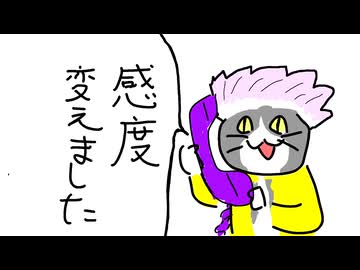 感度
変えました